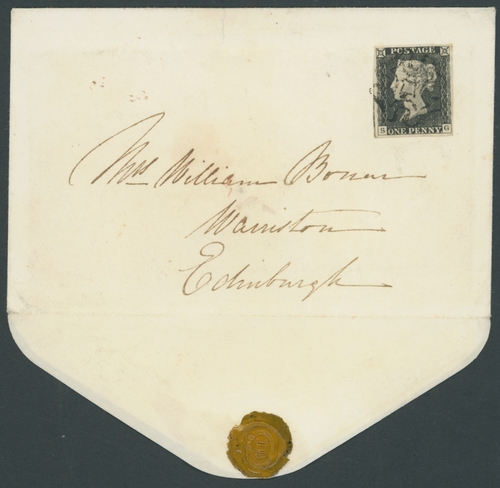 POSTAGE
ONE PENNY
G
Mrs William Bonar
Warriston
Edinburgh